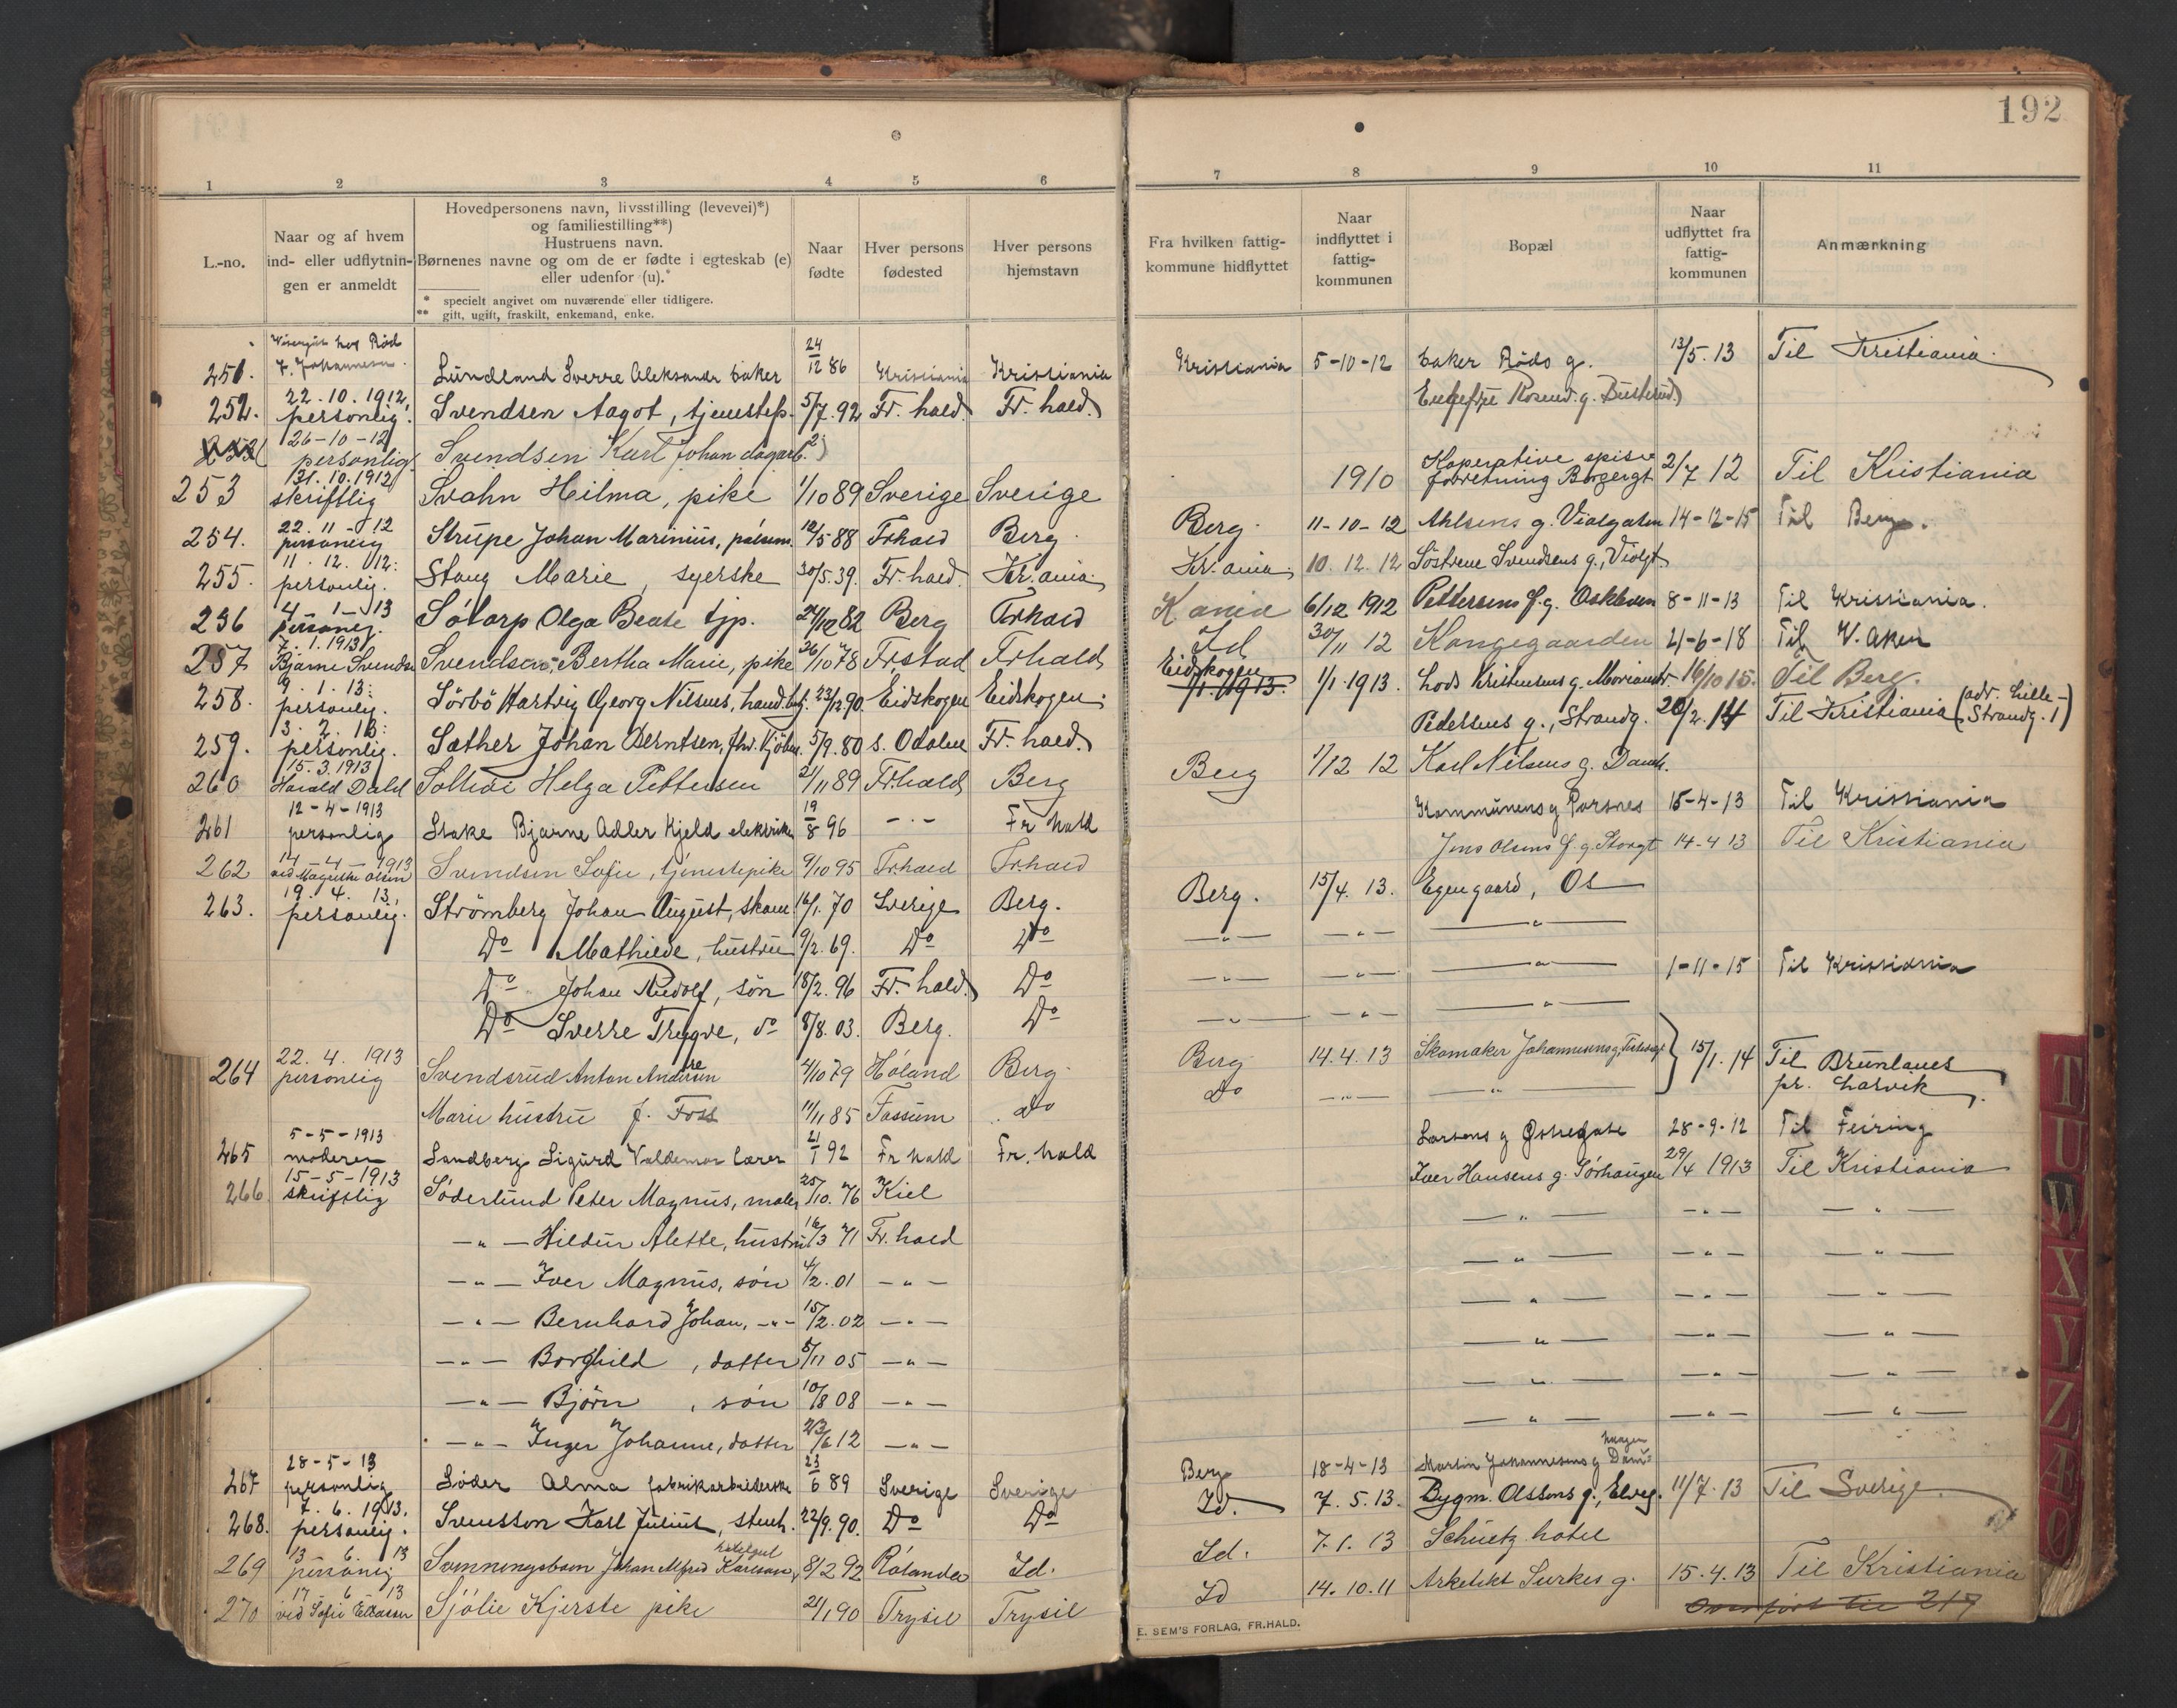 192
1 2 3 4 5 6 7 8 9 10 11
L.-no.
Naar og af hvem ind- eller udflytnin-gen er anmeldt
Hovedpersonens navn, livsstilling (levevei)*)
og familiestilling**)
Hustruens navn.
Børnenes navne og om de er fødte i egteskab (e)
eller udenfor (u).*
* specielt angivet om nuværende eller tidligere.
** gift, ugift, fraskilt, enkemand, enke.
Naar fødte
Hver persons fødested
Hver persons hjemstavn
Fra hvilken fattig-kommune hidflyttet
Naar indflyttet i fattig-kommunen
Bopæl
Naar udflyttet fra fattig-kommunen
Anmærkning
251. J. Johannesen Lundland Sverre Aleksandr baker 24/12 86 Kristiania Kristiania Kristiania 5-10-12 baker Røds g. 13/5. 13 Til Kristiania.
252. 22.10.1912, personlig. Svendsen Aagot, tjenestep. 5/7. 92 Fr. hald. Fr. hald.
26-10-12 personlig Svendsen Karl Johan dagarb.
253 31.10.1912 skriftlig Svahn Hilma, pike 1/10 89 Sverige Sverige 1910 Koperative spise forretning Borgergt 2/7 12 Til Kristiania
254. 22.11-12 personlig Strupe Johan Marinius, 12/5 88 Frhald Berg. Berg. 11-10-12 Ahlsens g. Violgaten 14-12-15 Til Berg.
255. 11.12.12: personlig. Stang Marie, syerske 30/5. 39. Fr. hald. Kr.ania. Kr.ania. 10.12.12 Söstrene Svendsens g., Violgt
256 4-1-13 personlig. Sótorp Olga Beate tjp. 24/12 82 Berg Frhald K.ania 6/12 1912 Pettersens g. Oskleven 8-11-13 Til Kristiania.
257 7.1.1913 Bjarne Svendsen Svendsen, Bertha Marie, pike 26/10 78 Fr.stad Frhald Id 30/11 12 Kongegaarden 21-6-18 Til V. Aker
258. 9.1.13: personlig. Sörbö Hartvig Georg Nilsens, 23/12 90. Eidskogen Eidskogen. Eidskogen 1/1.1913. 1/1.1913. Lods Kristensens g. 16/10 15. Til Berg.
259. 13.2.13: personlig. Sæther Johan Berntsen, 5/9. 80 S. Odalen Fr. hald. Pedersens g., Strandg. 20/2. 14 Til Kristiania (adr. Lille-Strandg. 1)
260 15.3.1913 Harald Dahl Helga Pettersen 21/11 89 Fr.hald Berg Berg 1/12 12 Karl Nilsens g. Damh.
261 12-4-1913 personlig Stake Bjarne Adler Kjeld elektriker 19/8 96 - " - Fr hald Kommunens g Porsnes 15-4-13 Til Kristiania
262 14-4-1913 ved Magnethe Olsen Svendsen Sofie, tjenestepike 9/10 95 Frhald Frhald Jens Olsens g. Storgt 14-4 13 Til Kristiania
263. 19.4.13, personlig. Strömberg Johan August, skom. 16/1. 70 Sverige Berg. Berg. 15/4. 13. Egengaard, Os
Do Mathilde, hustru 9/2. 69. Do Do — " — — " — — " —
Do Johan Rudolf, sön 18/2. 96 Fr. hald. Do — " — — " — — " — 1-11-15 Til Kristiania
Do Sverre Trygve, do 8/8. 03. Berg. Do — " — — " — — " —
264 22.4.1913 personlig Svendsrud Anton Andersen 4/10 79 Höland Berg. Berg 14.4.13 Skomaker Johannesens g, 15/1. 14 Til Brunlanes
Marie hustru f. Foss 11/11 85 Fossum do do — " — — " — pr. Larvik.
265 5-5-1913 moderen Sandberg Sigurd Valdemar lærer 21/1 92 Fr hald Fr. hald Larsens g Østregate 28-9-12 Til Feiring
266. 15-5-1913 skriftlig Söderlund Peter Magnus, maler 25/10. 76 Kiel Iver Hansens g. Sørhaugen 29/4 1913 Til Kristiania
— " — Hildur Alette, hustru 16/3 71 Fr. hald — " — — " — — " —
— " — Iver Magnus, sön 4/2. 01 — " — — " — — " — — " —
— " — Bernhard Johan, - " - 15/2. 02 — " — — " — — " — — " —
— " — Borghild, datter 5/11 05 — " — — " — — " — — " —
— " — Björn, sön 10/8 08 — " — — " — — " — — " —
— " — Inger Johanne, datter 23/6 12 — " — — " — — " — — " —
267 28-5-13 personlig Søder Alma fabrikarbeiderske 23/6 89 Sverige Sverige Berg 18-4-13 Martin Johannesens g Damhaugen
268. 7.6.1913. personlig. Svensson Karl Julius, stenh. 22/9. 90. Do Do Id. 7.5.13. Bygm. Olssons g., Elveg. 11/7. 13 Til Sverige.
269 13 6. 13 personlig Svenningsbom Johan Alfred Karlsson, 8/2 92 Rölanda Id. Id. 7.1.13 Schüetz hotel
270 17 6 13 ved Sofie Ellassen Sjölie Kjerste pike 21/1 90 Trysil Trysil Id 14.10.11 Arkitekt Surkes g. 15.4.13 Til Kristiania
Overført til 217
E. SEM'S FORLAG, FR.HALD.
T
U
W
X
Y
Z
Æ
Ø